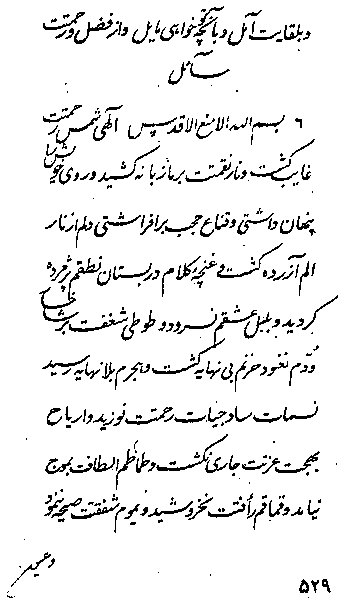 و بلقایت آئل و بآنچه تو خواهی مایل و از فضل و رحمتت
سائل
۶ بسم الله الامنع الاقدس الهی شمس رحمتت
غایب گشت و نار نقمتت بر ما زبانه کشید و روی خوش را
پنهان داشتی و قناع حجب بر افراشتی دلم از نار
الم آزرده گشت و غنچهٔ کلام در بستان نطقم پژمرده
گردید و بلبل عشقم نسرود و طوطی شغفت بر شاخسار
ودّم نغنود حزنم بی نهایه گشت و هجرم بلا نهایه رسید
نسمات ساذجیات رحمتت نوزید و اریاح
بهجت عزتت جاری نگشت و طماطم الطافت بموج
نیامد و قماقم رأفتت نخروشید و یموم شفقتت صیحه ننمود
و عیون
۵۲۹